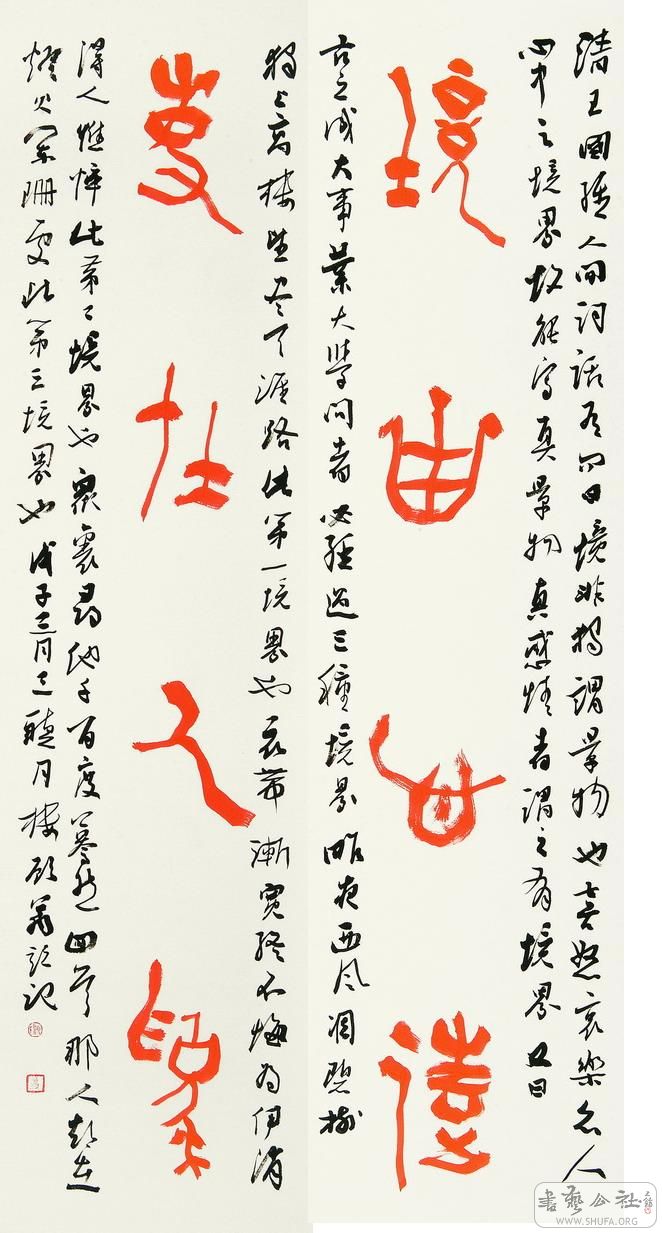 境由心造
清王國維人间词话有曰境非獨謂景物也喜怒哀樂亦人
心中之境界故能寫真景物真感情者謂之有境界又曰
古之成大事業大學问者必經過三種境界昨夜西風凋碧樹
事在人為
獨上高樓望尽天涯路此第一境界也衣帶漸寬終不悔为伊消
得人憔悴此第二境界也眾裏尋他千百度驀然回首那人却在
燈火闌珊處此第三境界也戊子三月三聽月樓記
書藝公社
WWW.SHUFA.ORG